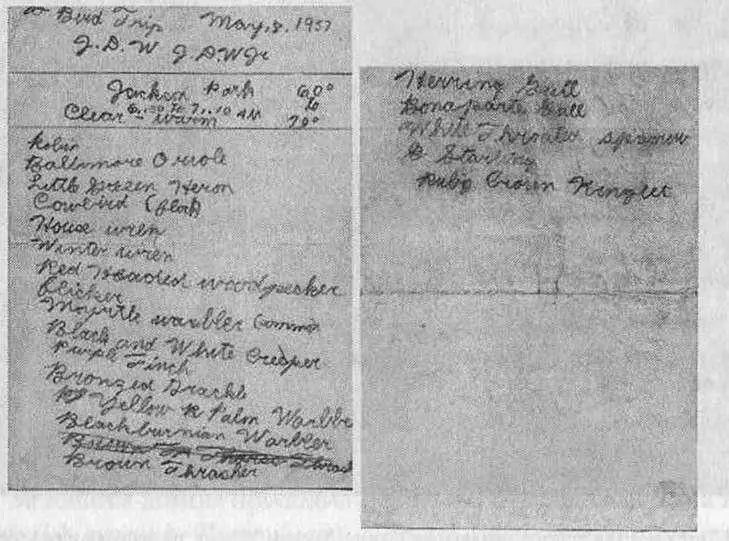 Bird Trip May, 8, 1937
J.D.W J.D.W Jr
Jackson Park 60°
to
6:00 to 7:10 AM
Clear warm 70°
Robin
Baltimore Oriole
Little Green Heron
Cowbird (flock)
House wren
Winter wren
Red Headed woodpecker
Flicker
Myrtle warbler Common
Black and White Creeper
Purple Finch
Bronzed Grackle
Yellow R Palm Warbler
Blackburnian Warbler
Brown Thrasher
Herring Gull
Bonaparte Gull
White Throated sparrow
Starling
Ruby Crown Kinglet